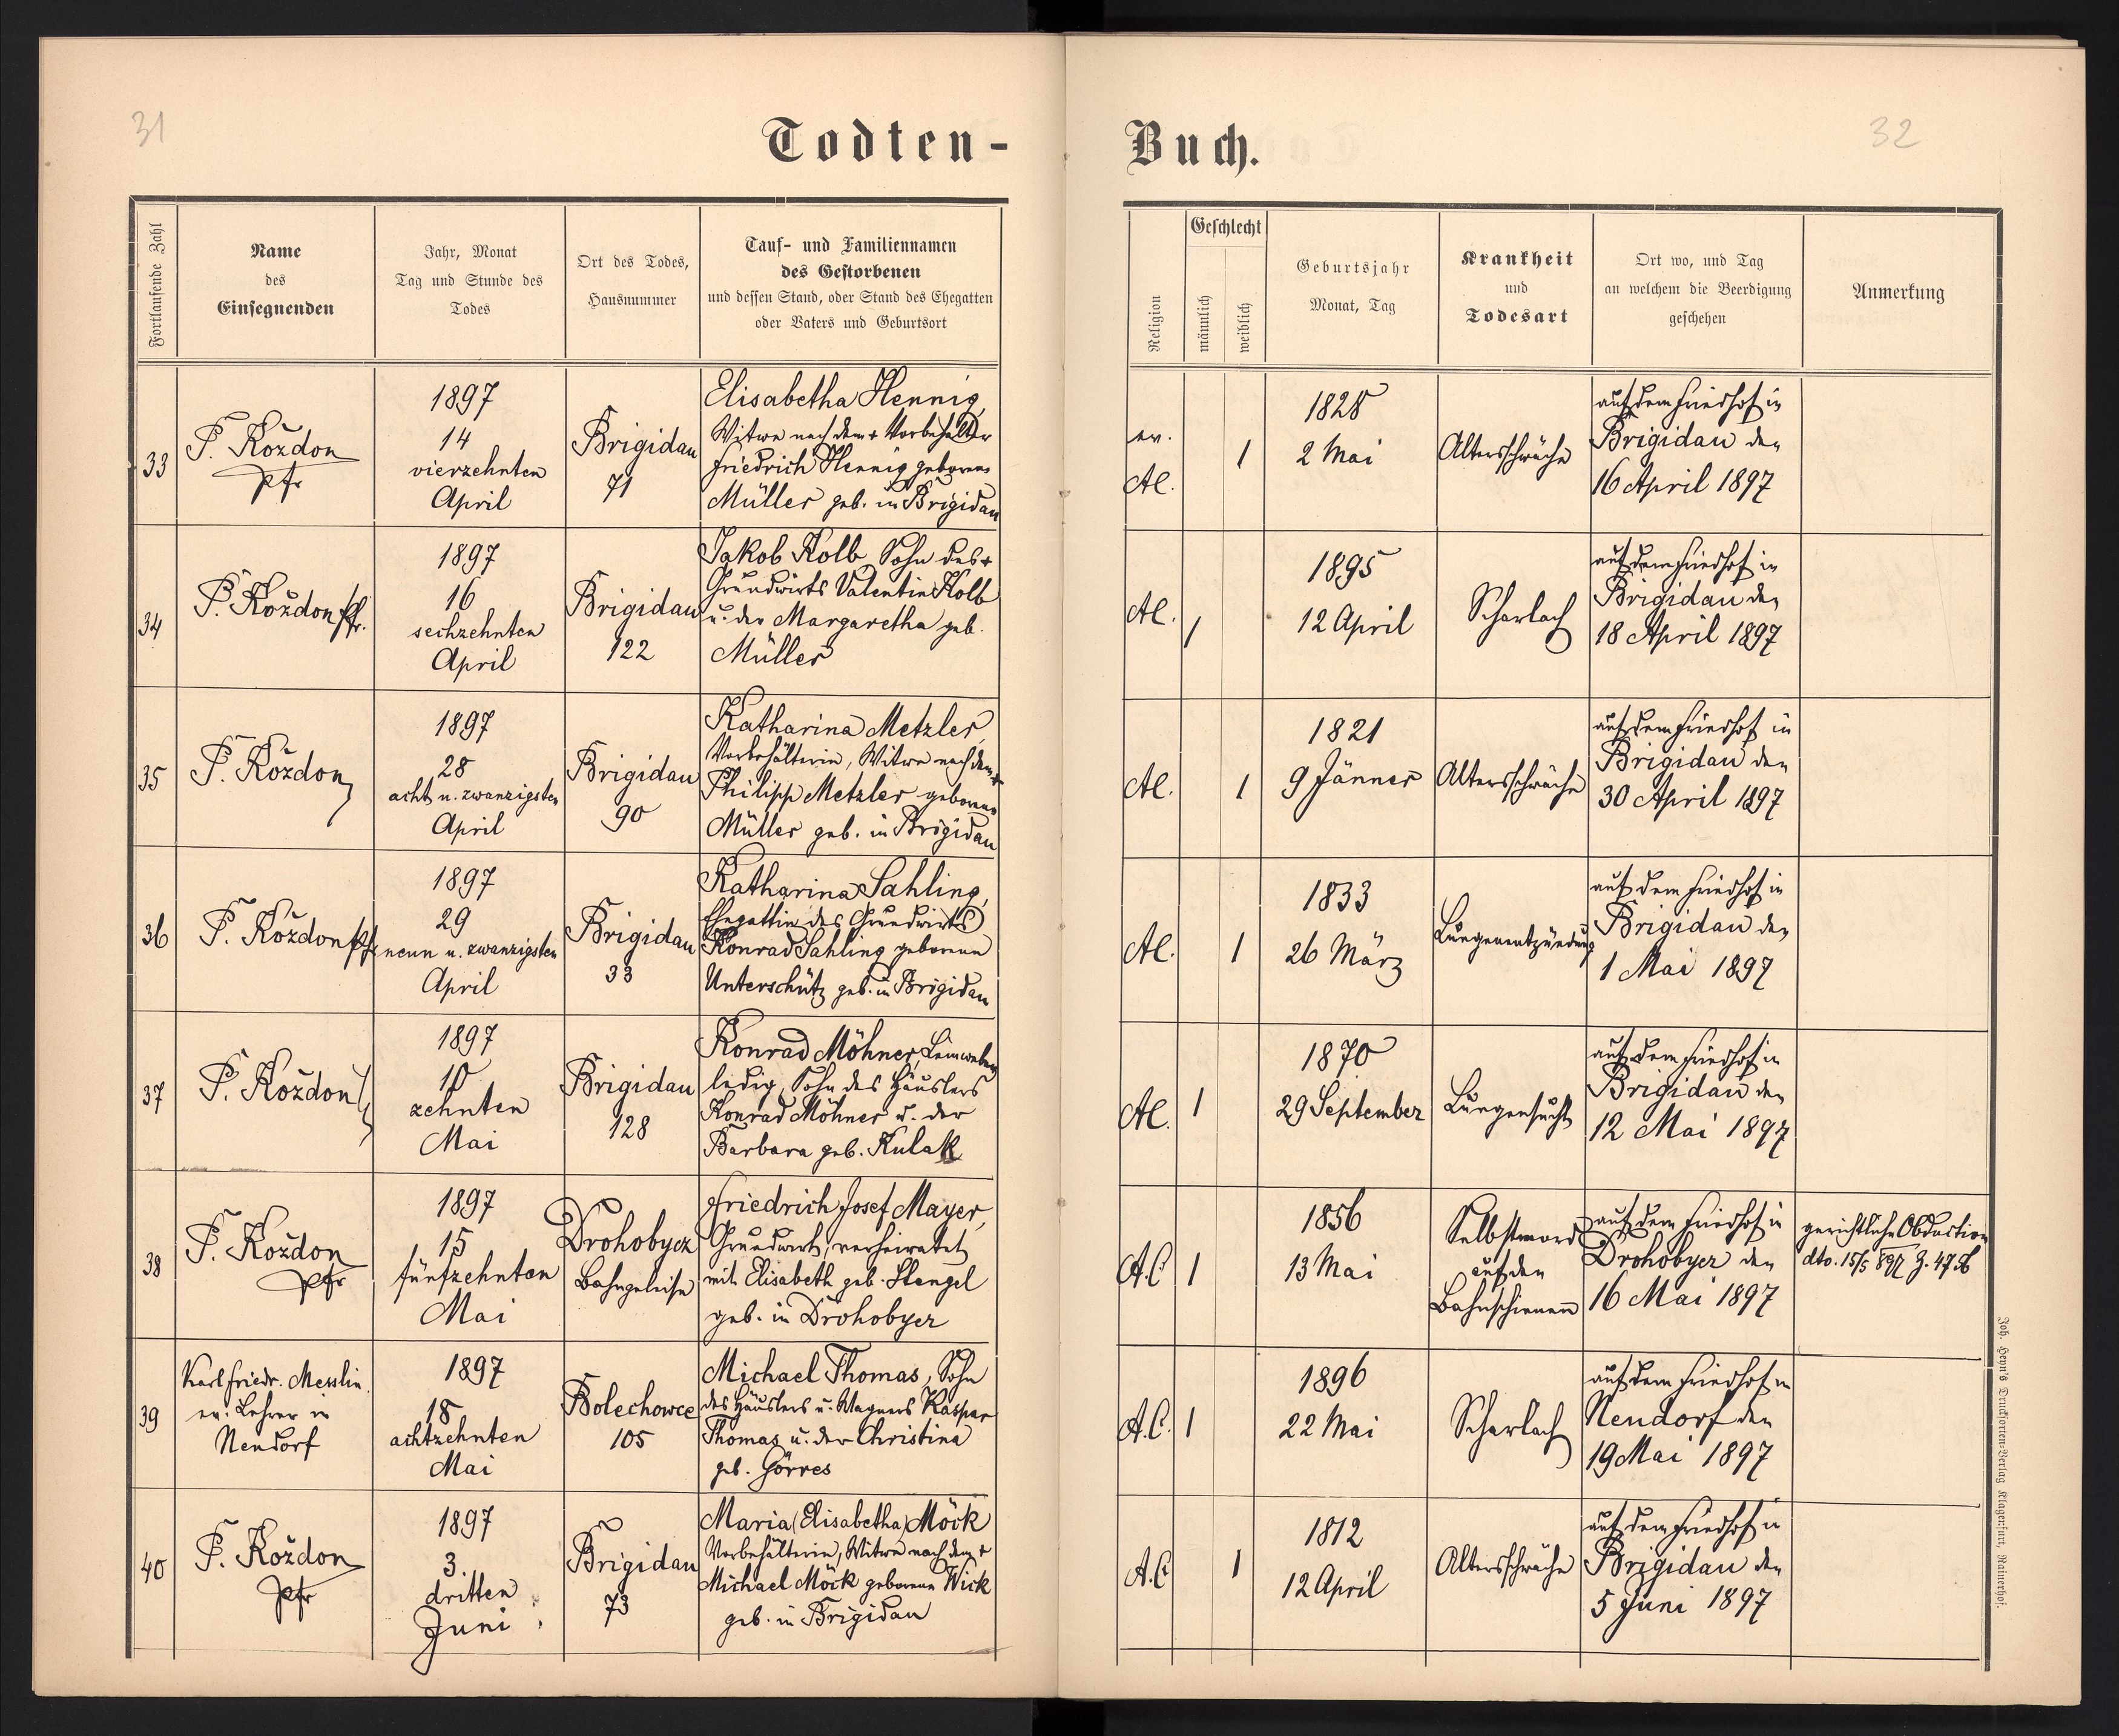 31
Todten-
Fortlaufende Zahl
Name
des
Einsegnenden
Jahr, Monat
Tag und Stunde des
Todes
Ort des Todes,
Hausnummer
Tauf- und Familiennamen
des Gestorbenen
und dessen Stand, oder Stand des Ehegatten
oder Vaters und Geburtsort
33
P. Kożdon
Pfr
1897
14
vierzehnten
April
Brigidau
71
Elisabetha Hennig,
Witwe nach dem + Vorbehälter
Friedrich Hennig geborene
Müller geb. in Brigidau
34
P. Kożdon Pfr.
1897
16
sechzehnten
April
Brigidau
122
Jakob Kolb Sohn des +
Grundwirts Valentin Kolb
u. der Margaretha geb.
Müller
35
P. Kożdon
1897
28
acht u. zwanzigsten
April
Brigidau
90
Katharina Metzler,
Vorbehälterin, Witwe nach dem +
Philipp Metzler geborene
Müller geb. in Brigidau
36
P. Kożdon Pfr
1897
29
neun u. zwanzigsten
April
Brigidau
33
Katharina Sahling,
Ehegattin des Grundwirts
Konrad Sahling geborene
Unterschütz geb. in Brigidau
37
P. Kożdon
1897
10
zehnten
Mai
Brigidau
128
Konrad Möhner, Leinweber
ledig, Sohn des Häuslers
Konrad Möhner u. der
Barbara geb. Kulak
38
P. Kożdon
Pfr
1897
15
fünfzehnten
Mai
Drohobycz
Bahngeleise
Friedrich Josef Mayer,
Grundwirt, verheiratet
mit Elisabeth geb. Stengel
geb. in Drohobycz
39
Karl Friedr. Messlin
ev. Lehrer in
Neudorf
1897
18
achtzehnten
Mai
Bolechowce
105
Michael Thomas, Sohn
des Häuslers u. Wagners Kaspar
Thomas u. der Christina
geb. Görres
40
P. Kożdon
Pfr
1897
3.
dritten
Juni
Brigidau
73
Maria (Elisabetha) Möck
Vorbehälterin, Witwe nach dem +
Michael Möck geborene Wick
geb. in Brigidau
32
Buch.
Religion
Geschlecht
männlich
weiblich
Geburtsjahr
Monat, Tag
Krankheit
und
Todesart
Ort wo, und Tag
an welchem die Beerdigung
geschehen
Anmerkung
ev.
AC.
1
1828
2 Mai
Altersschwäche
auf dem Friedhof in
Brigidau den
16 April 1897
AC.
1
1895
12 April
Scharlach
auf dem Friedhof in
Brigidau den
18 April 1897
AC.
1
1821
9 Jänner
Altersschwäche
auf dem Friedhof in
Brigidau den
30 April 1897
AC.
1
1833
26 März
Lungenentzündung
auf dem Friedhof in
Brigidau den
1 Mai 1897
AC.
1
1870
29 September
Lungensucht
auf dem Friedhof in
Brigidau den
12 Mai 1897
A.C
1
1856
13 Mai
Selbstmord
auf den
Bahnschienen
auf dem Friedhof in
Drohobycz den
16 Mai 1897
gerichtliche Obduction
dto. 15/5 897 Z. 47
A.C.
1
1896
22 Mai
Scharlach
auf dem Friedhof in
Neudorf den
19 Mai 1897
A.C
1
1812
12 April
Altersschwäche
auf dem Friedhof in
Brigidau den
5 Juni 1897
Joh. Heyn's Drucksorten-Verlag Klagenfurt, Rainerhof.